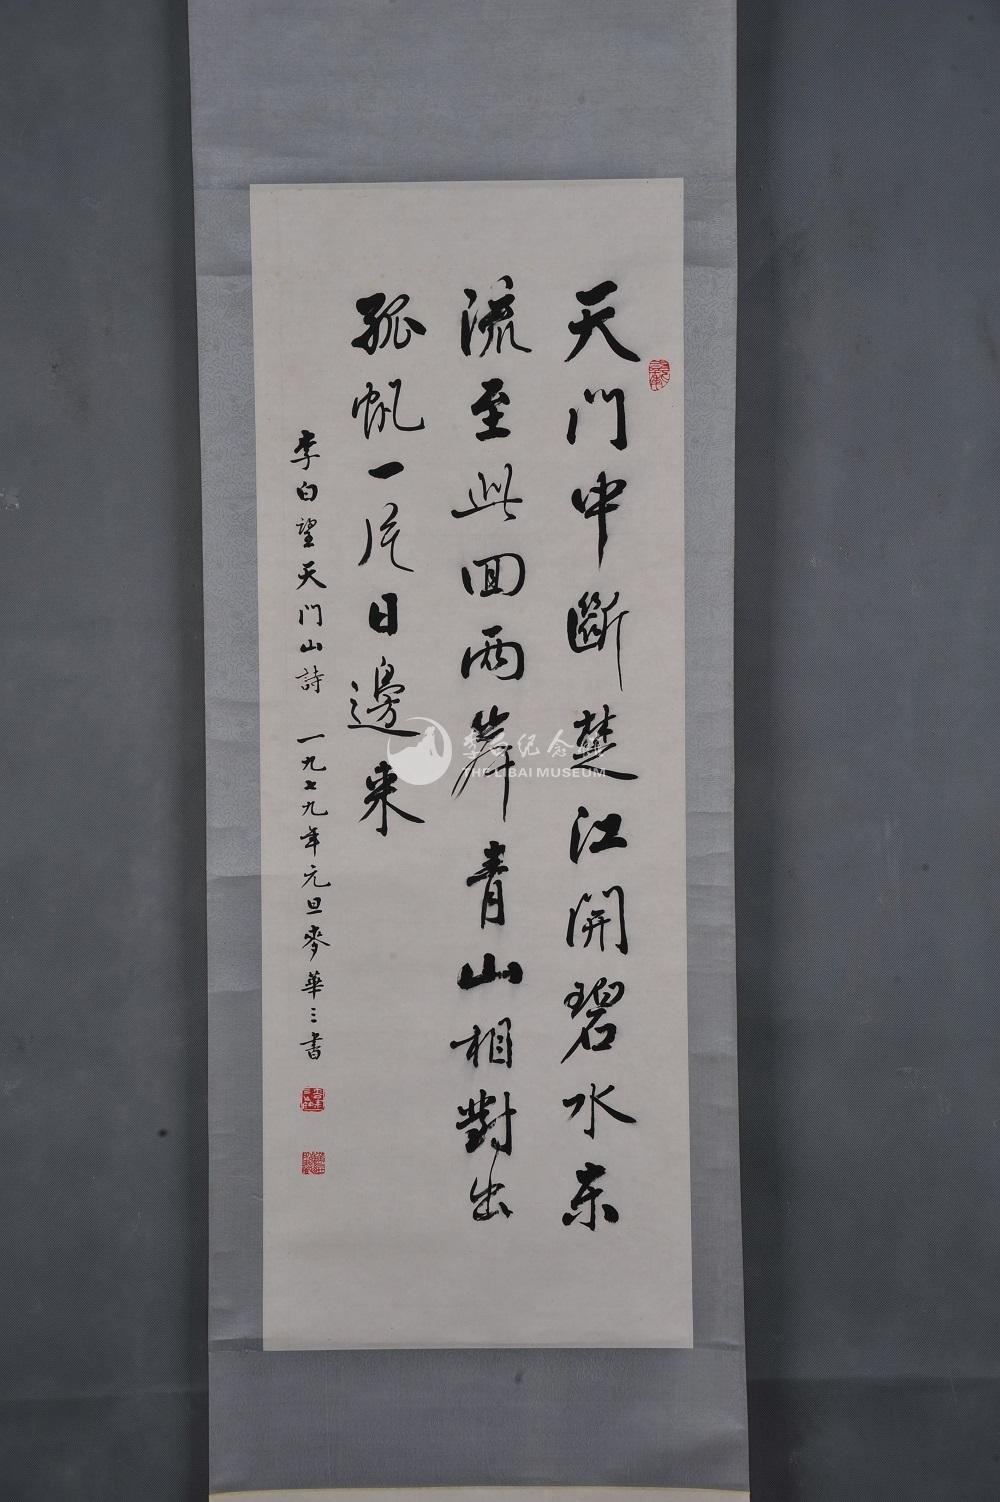 天門中斷楚江開碧水东
流至此回两岸青山相對出
孤帆一片日邊来
李白望天门山詩 一九七九年元旦麥華三書
李白纪念馆
THE LIBAI MUSEUM